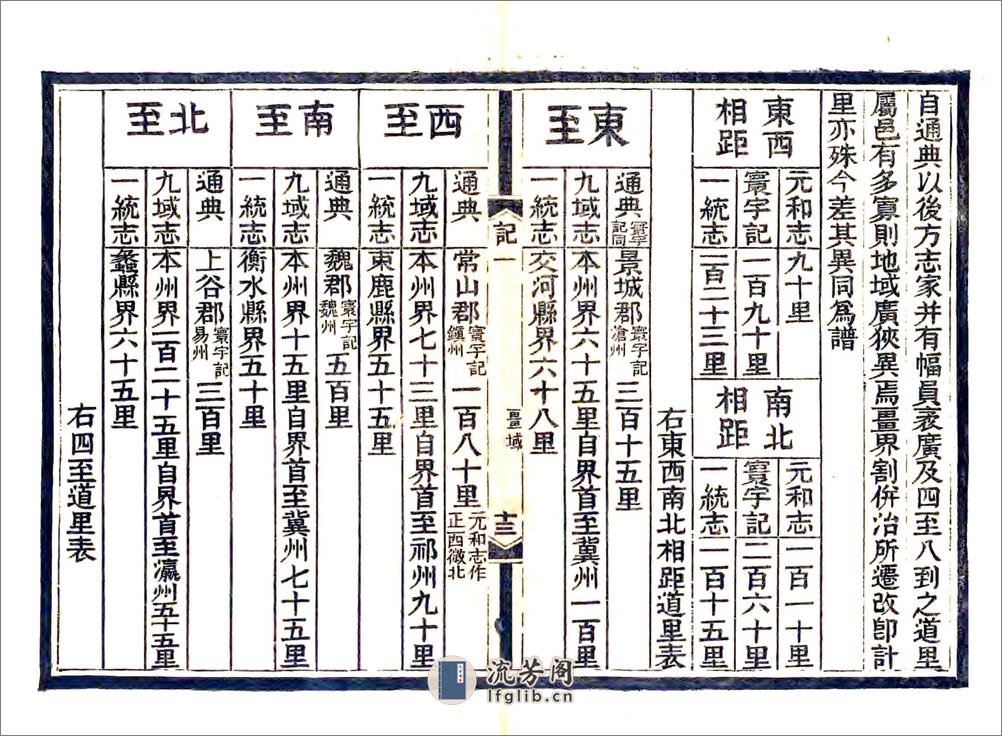 自通典以後方志家并有幅員袤廣及四至八到之道里
屬邑有多寡則地域廣狹異焉畺界割倂治所遷改卽計
里亦殊今差其異同爲譜
東西相距
元和志 九十里
寰宇記 一百九十里
一統志 一百二十三里
南北相距
元和志 一百一十里
寰宇記 二百六十里
一統志 一百十五里
右東西南北相距道里表
東至
通典寰宇記同 景城郡寰宇記滄州 三百十五里
九域志 本州界六十五里自界首至冀州一百里
一統志 交河縣界六十八里
記一
畺域
十三
西至
通典 常山郡寰宇記鎭州 一百八十里元和志作正西微北
九域志 本州界七十三里自界首至祁州九十里
一統志 束鹿縣界五十五里
南至
通典 魏郡寰宇記魏州 五百里
九域志 本州界十五里自界首至冀州七十五里
一統志 衡水縣界五十里
北至
通典 上谷郡寰宇記易州 三百里
九域志 本州界一百二十五里自界首至瀛州五十五里
一統志 蠡縣界六十五里
右四至道里表
流芳阁
lfglib.cn